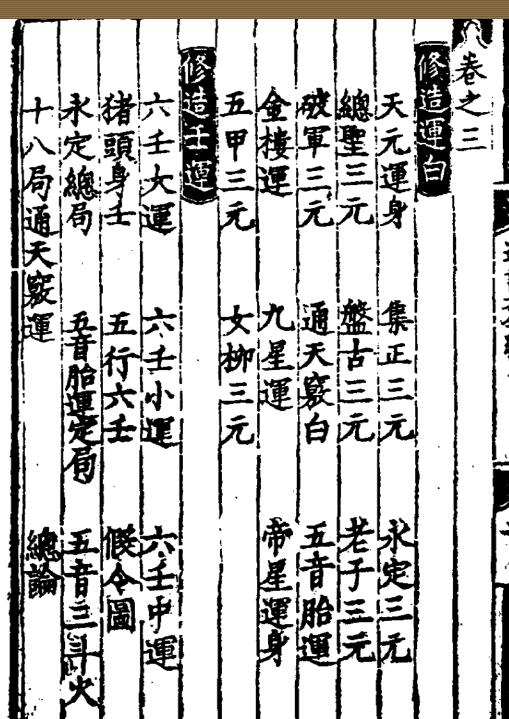 卷之三
修造運白
天元運身 集正三元 永定三元
總聖三元 盤古三元 老子三元
破軍三元 通天竅白 五音胎運
金樓運 九星運 帝星運身
五甲三元 女柳三元
修造壬運
六壬大運 六壬小運 六壬中運
猪頭身壬 五行六壬 假令圖
永定總局 五音胎運定局 五音三斗火
十八局通天竅運 總論